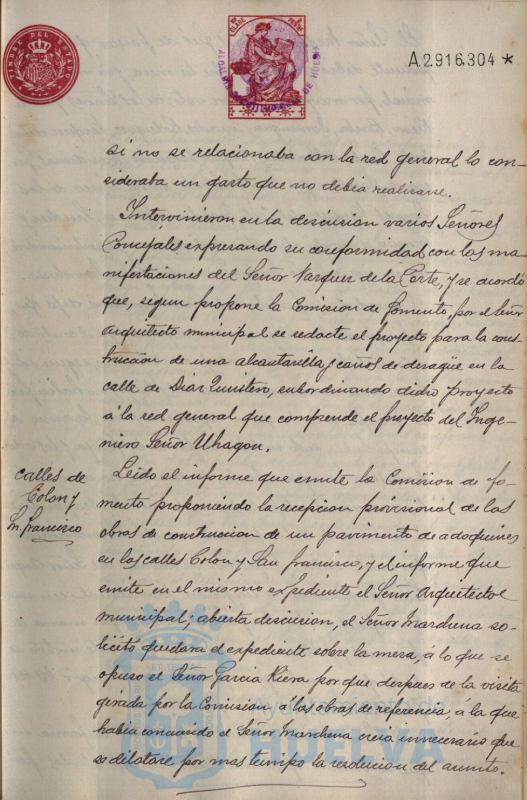 TIMBRE DEL ESTADO
A.2.916.304 *
si no se relacionaba con la red general lo con-
sideraba un gasto que no debia realizarse.
Intervinieron en la discusion varios Señores
Concejales expresando su conformidad con las ma-
nifestaciones del Señor Vazquez de la Corte, y se acordó
que, segun propone la Comision de Fomento, por el Señor
Arquitecto municipal se redacte el proyecto para la cons-
trucción de una alcantarilla y caños de desagüe en la
calle de Diaz Quintero, subordinando dicho proyecto
á la red general que comprende el proyecto del Inge-
niero Señor Uhagon.
calles de
Colon y
Sn. Francisco
Leido el informe que emite la Comision de Fo-
mento proponiendo la recepcion provisional de las
obras de construccion de un pavimento de adoquines
en las calles Colon y San Francisco, y el informe que
emite en el mismo expediente el Señor Arquitecto
municipal; abierta discusion, el Señor Marchena so-
licitó quedara el expediente sobre la mesa, á lo que se
opuso el Señor Garcia Riera por que despues de la visita
girada por la Comision á las obras de referencia, á la que
habia concurrido el Señor Marchena creia innecesario que
se dilatase por mas tiempo la resolucion del asunto.
Ayuntamiento de
HUELVA